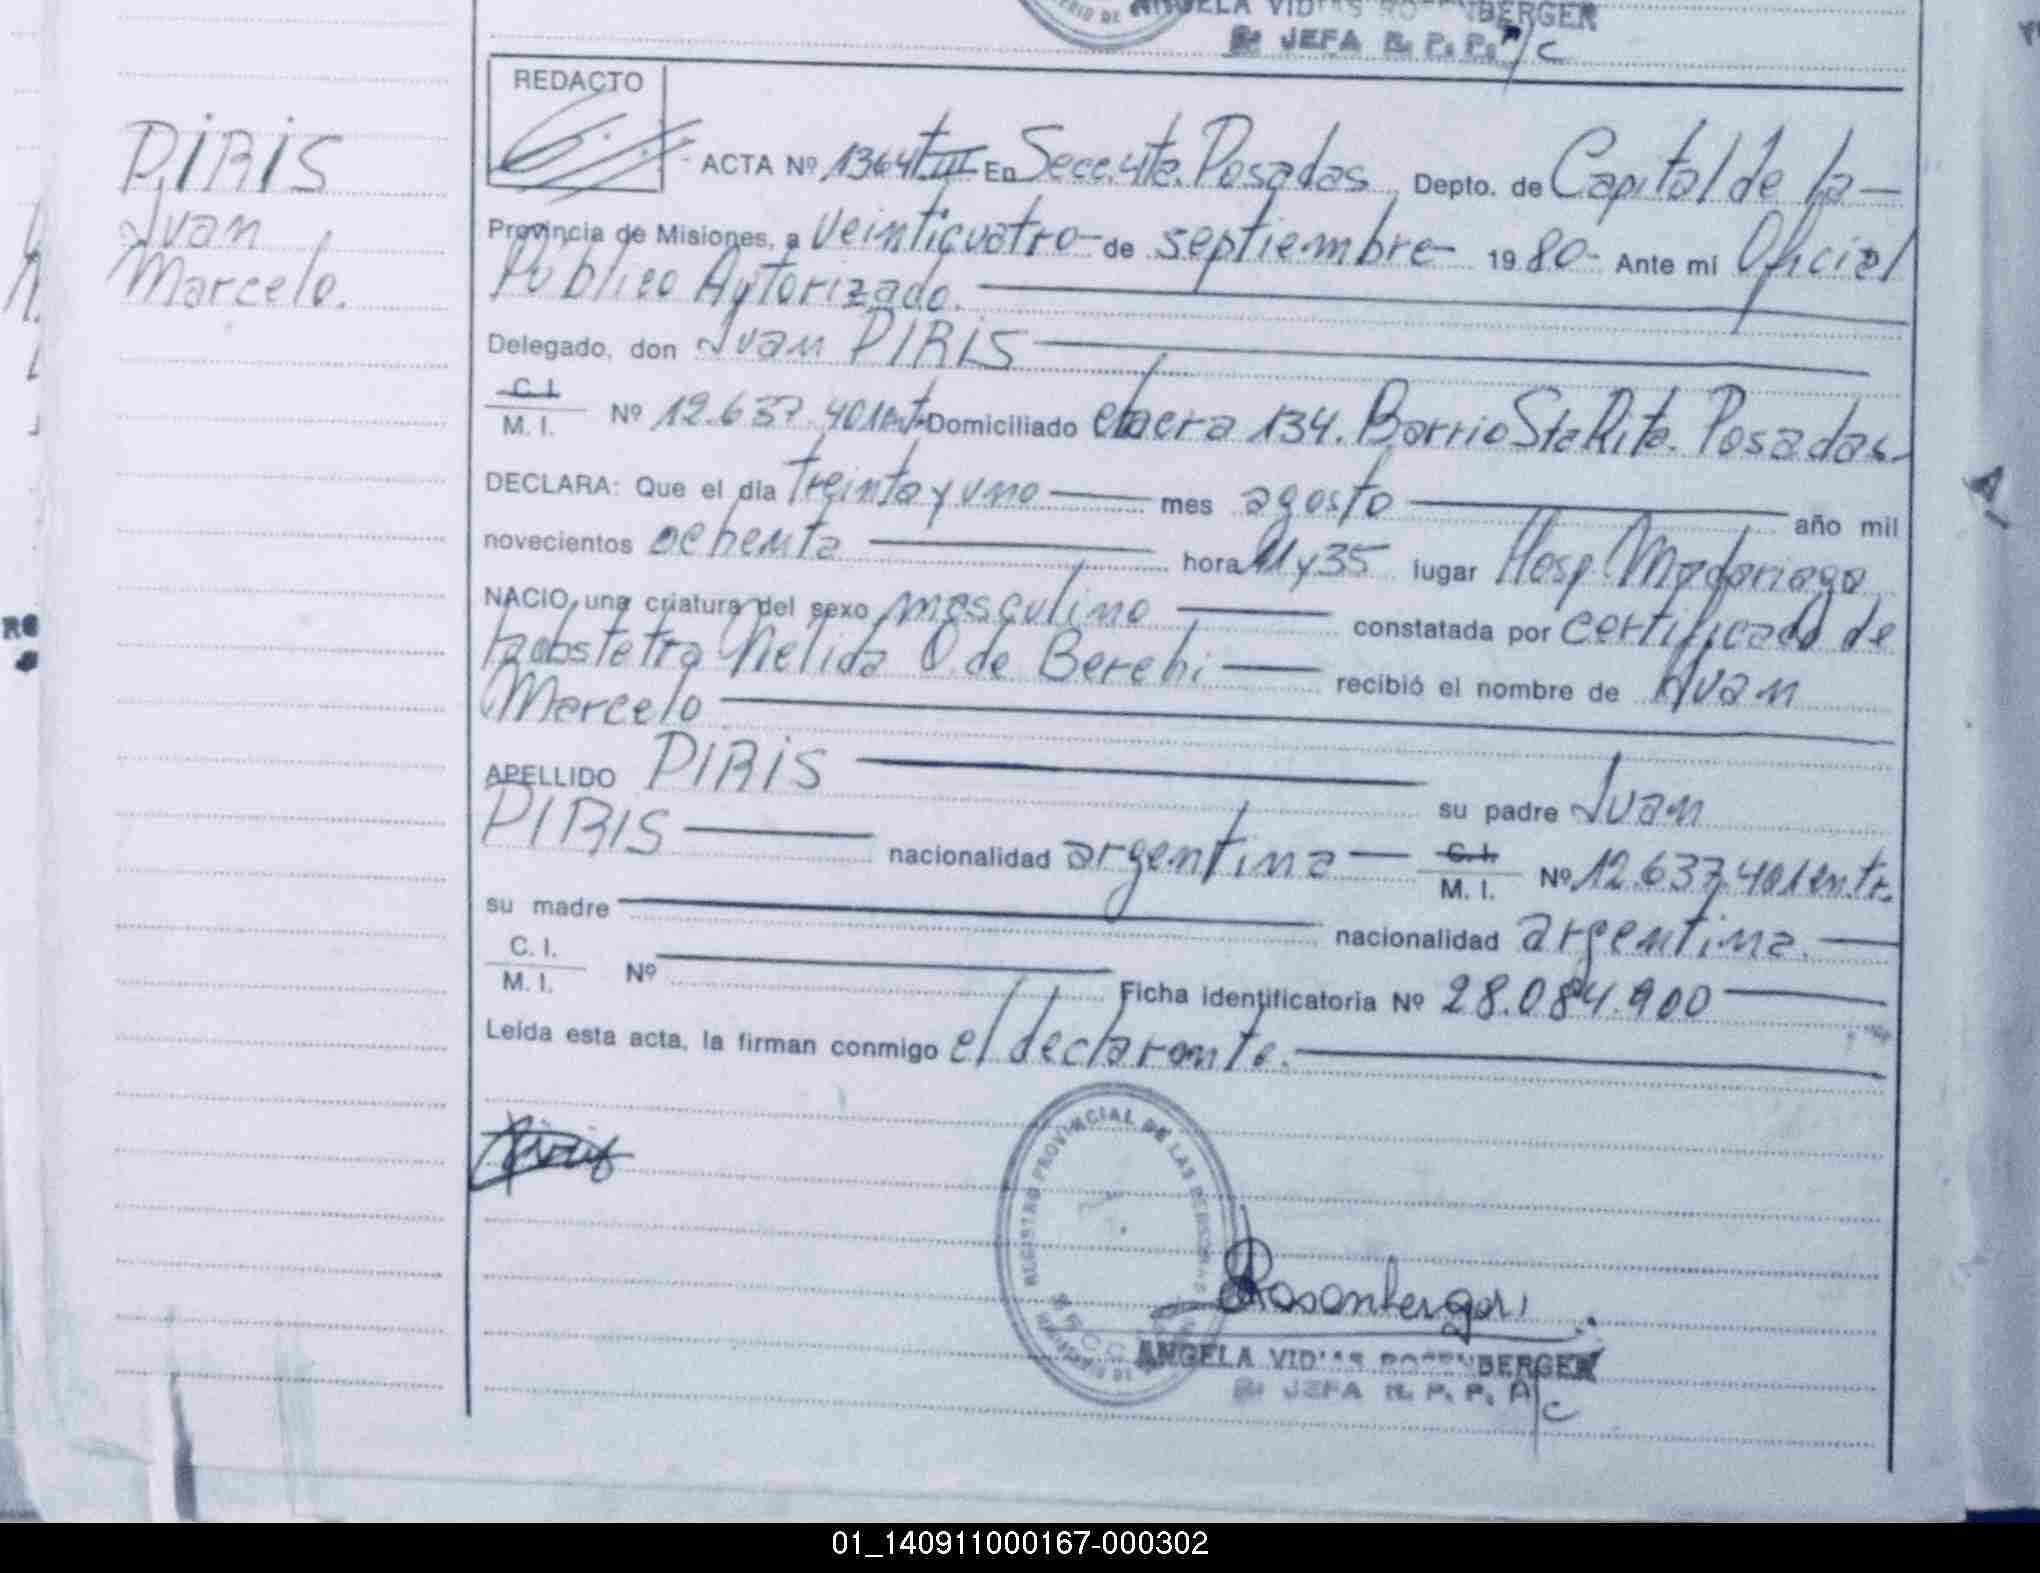 ANGELA VIDAS ROSENBERGER
JEFA R. P. P. A/C
REDACTO
PIRIS
Juan
Marcelo.
ACTA Nº 1364 t III En Secc. 4ta. Posadas Depto. de Capital de la
Provincia de Misiones, a veinticuatro de septiembre 1980 Ante mí Oficial
Público Autorizado.
Delegado, don Juan PIRIS
C. I.
M. I. Nº 12.637.401 Domiciliado 134. Barrio Sta Rita. Posadas.
DECLARA: Que el día treinta y uno mes agosto año mil
novecientos ochenta hora 11 y 35 lugar Hosp. Madariaga
NACIO una criatura del sexo masculino constatada por certificado de
la obstetra Nelida O. de Berchi recibió el nombre de Juan
Marcelo
APELLIDO PIRIS su padre Juan
PIRIS nacionalidad argentina C. I.
M. I. Nº 12.637.401 entr.
su madre nacionalidad argentina.
C. I.
M. I. Nº Ficha identificatoria Nº 28.084.900
Leída esta acta, la firman conmigo el declarante.
Piris
REGISTRO PROVINCIAL DE LAS PERSONAS
Rosenberger
ANGELA VIDAS ROSENBERGER
JEFA R. P. P. A/C
01_140911000167-000302